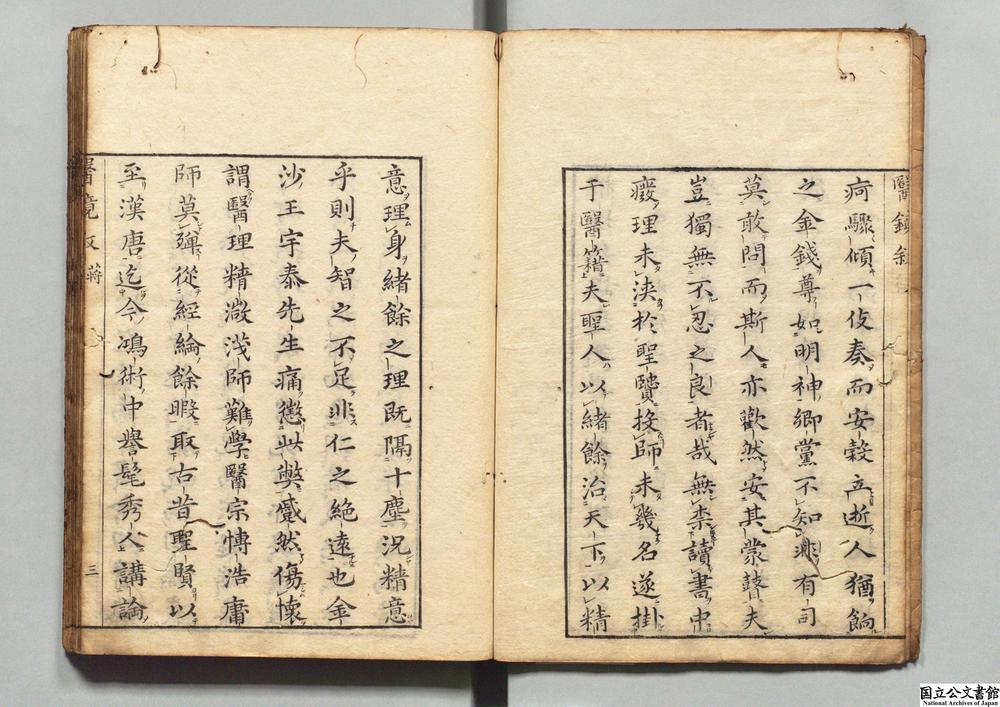 疴驟傾一伎奏而安穀立逝人猶餉
之金錢尊如明神鄉黨不知非有司
莫敢問而斯人亦歡然安其蒙瞽夫
豈獨無不忍之良者哉無柰讀書中
癈理未浹於聖贒投師未幾名遂掛
于醫籍夫聖人以緒餘治天下以精
意理身緒餘之理既隔十塵況精意
乎則夫智之不足非仁之絶遠也金
沙王宇泰先生痛懲此獘慼然傷懷
謂醫理精微淺師難學醫宗慱浩庸
師莫殫從經綸餘暇取古昔聖賢以
至漢唐迄今鴻術中譽髦秀人講論
醫鏡叙 蔣
三
国立公文書館
National Archives of Japan